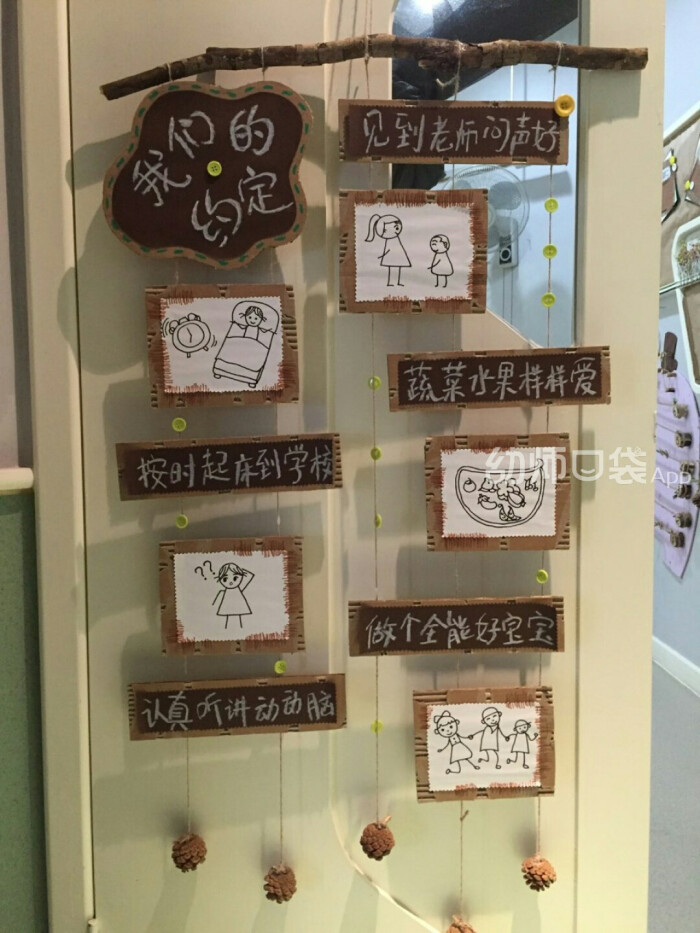 我们的
约定
按时起床到学校
??
认真听讲动动脑
见到老师问声好
蔬菜水果样样爱
做个全能好宝宝
幼师口袋App